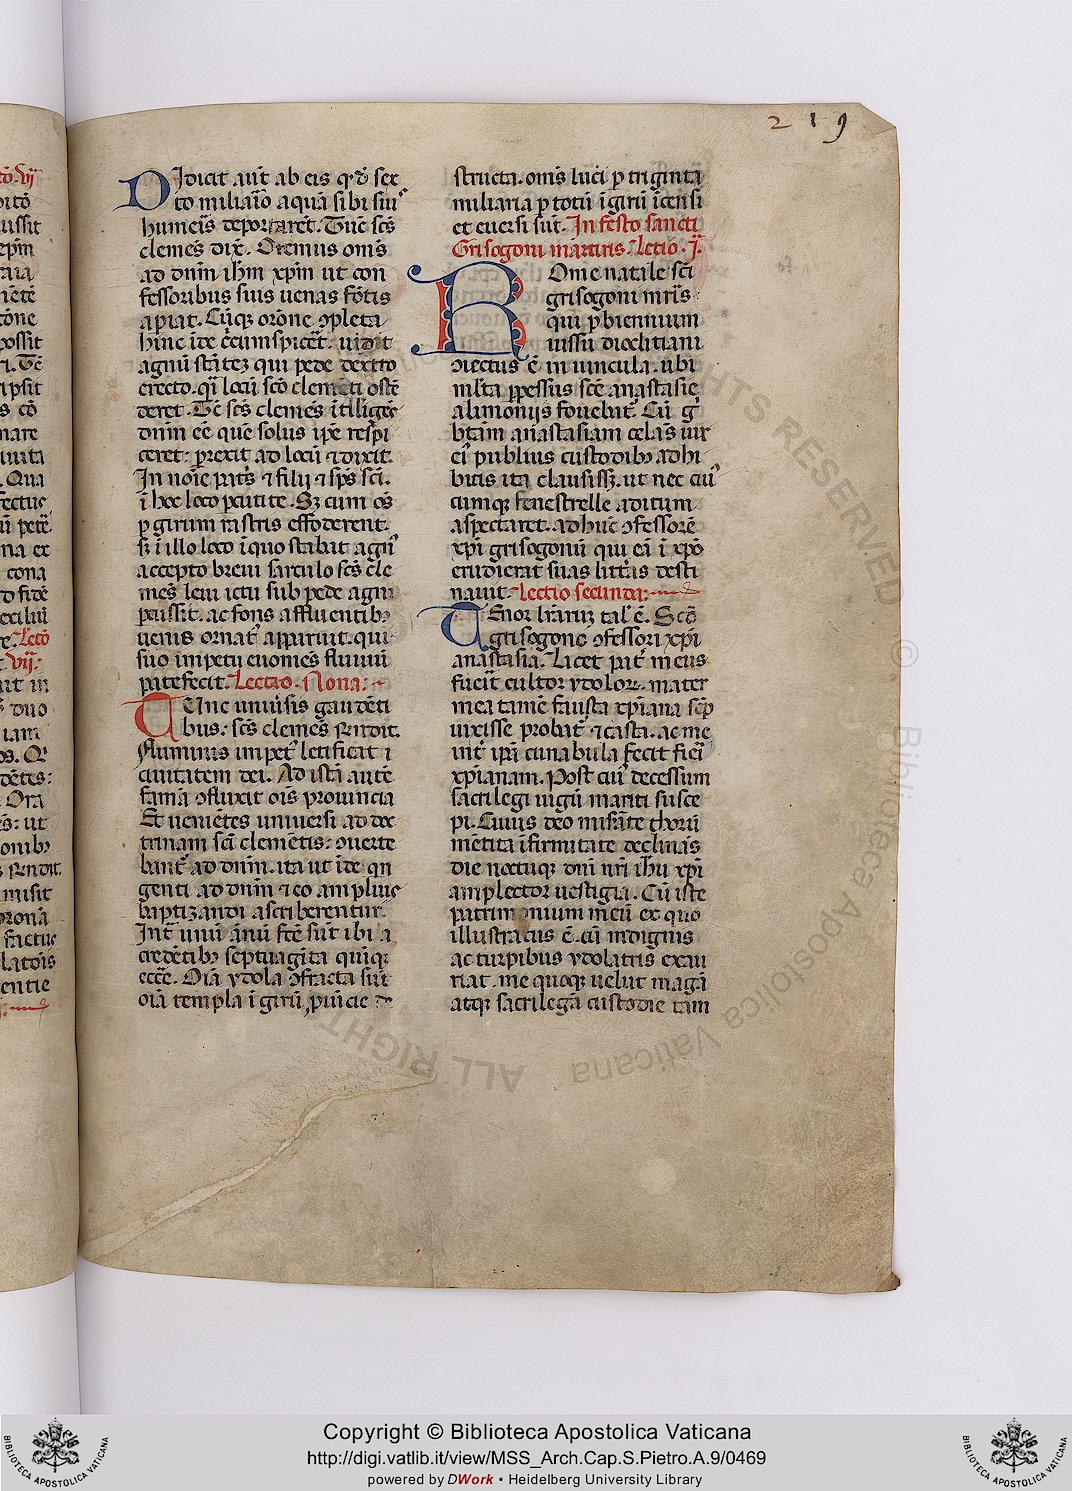 219
Didicit aut̄ ab eis qd̄ sex
to miliar̄io aquā sibi sui'
humeris deportaret. Tūc scs̄
clemēs dix̄. Oremus om̄s
ad dnm̄ ihm̄ xpm̄ ut con
fessoribus suis uenas fōtis
apiat. Cūq; or̄one ↄpleta
hinc īde c̄cumspicēt. uidit
agnū stātez qui pede dextro
erecto. q̄i locū scō clemēti ostē
deret. Tc̄ scs̄ clemēs ītlliḡes
dnm̄ eē quē solus ip̄e respi
ceret: prexit ad locū ⁊ dixit.
In noīe patr̄s ⁊ filij ⁊ sp̄s sc̄i.
ī hoc loco pcutite. Sz cum oēs
p girum rastris effoderent.
sz ī illo loco ī quo stabat agn'
accepto breui sarculo scs̄ cle
mēs leui ictu sub pede agni
pcussit. ac fons affluentibz
uenis ornat' apparuit. qui
suo impetu euomēs fluuiū
patefecit. Lectio. Nona.
Tunc uniu̓sis gaudēti
bus: scs̄ clemēs
fluminis impet' letificat
ciuitatem dei. Ad istā autē
famā ↄfluxit ois prouincia
Et uenietes uniuersi ad doc
trinam sc̄i clemētis: ↄuerte
bant' ad dnm̄. ita ut īde qn
genti. ad dnm̄ ⁊ eo. amplius
baptizandi ascriberentur.
Int' unū ānū fcē sūt ibi a
credētibz septuagīta quīqz
eccē. Oīa ydola ↄfracta sūt
oīa templa ī girū puīcie
structa. om̄s luci p triginta
miliaria p totū ī girū īcensi
et euersi sūt. In festo sancti
Grisogoni martiris. Letio. j.
Rome natale sc̄i
grisogoni mr̄is.
qui p biennium
iussu dioclitiani
ↄiectus ē in uincula. ubi
ml'ta ppessus scē anastasie
alimoniis fouebat'. Cū g'
btām anastasiam celās uir
ei' publius custodibz adhi
bitis ita clausissz. ut nec cui'
cumqz fenestrelle aditum
aspectaret. ad hūc ↄfessorē
xpī grisogonū qui eā ī xpō
erudierat suas littr̄as desti
nauit. Lectio secunda:
Tenor lr̄arum tal' ē. Scō
grisogono ↄfessori xpī
anastasia. Licet pat' meus
fuerit cultor ydolor. mater
mea tamē fauista xpīana sep
uixisse probat' ⁊ casta. ac me
int' ipā cunabula fecit fieri
xpīanam. Post cui' decessum
sacrilegi iugū mariti susce
pi. Cuius deo misāte thorū
mētita īfirmitate declinās
die noctuqz dn̄i nr̄i ihū xpī
amplector uestigia. Cū iste
patrimonium meū ex quo
illustratus ē. cū indignis
ac turpibus ydolatris exau
riat. me quoqz uelut magā
atqz sacrilegā custodie tam
Copyright © Biblioteca Apostolica Vaticana
http://digi.vatlib.it/view/MSS_Arch.Cap.S.Pietro.A.9/0469
powered by DWork • Heidelberg University Library
BIBLIOTECA APOSTOLICA VATICANA
BIBLIOTECA APOSTOLICA VATICANA
ALL RIGHTS RESERVED © Biblioteca Apostolica Vaticana